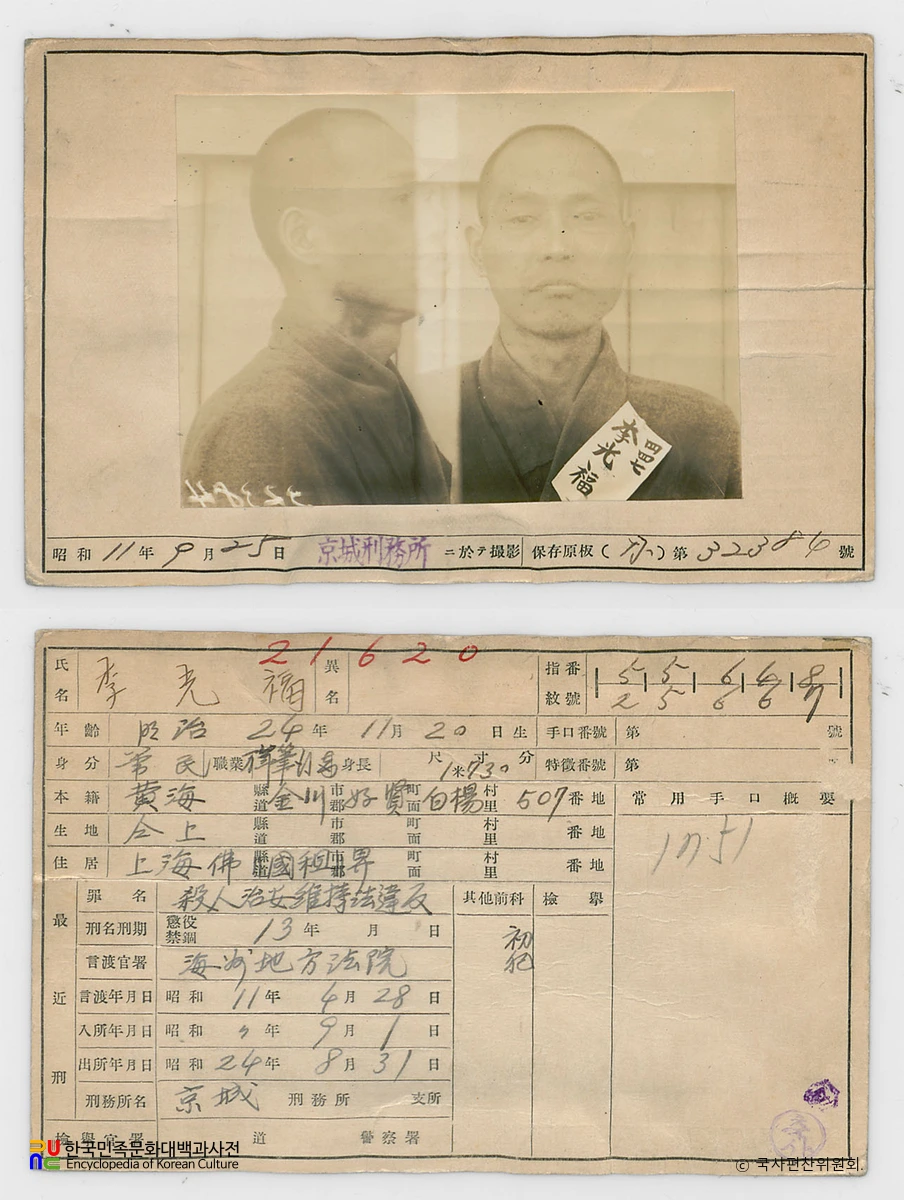 四四七
李光福
32384
昭和 11年 9月 25日 京城刑務所 ニ於テ撮影 保存原板( ) 第 32384 號
21620
氏名 李光福 異名 指紋番號 5 5 6 6 8
2 5 6 6 7
年齡 明治 24年 11月 20日生 手口番號 第 號
身分 常民 職業 身長 尺 寸 分 1米730 特徵番號 第
本籍 黃海 縣道 金川 市郡 好賢 町面 白楊 村里 507 番地 常用手口槪要
生地 仝上 縣道 市郡 町面 村里 番地
住居 上海佛國租界 縣道 市郡 町面 村里 番地
最近刑
罪名 殺人治安維持法違反 其他前科 檢擧
刑名刑期 懲役 禁錮 13年 月 日 初犯
言渡官署 海州地方法院
言渡年月日 昭和 11年 4月 28日
入所年月日 昭和 〃年 9月 1日
出所年月日 昭和 24年 8月 31日
刑務所名 京城 刑務所 支所
檢擧官署 道 警察署
한국민족문화대백과사전
Encyclopedia of Korean Culture
© 국사편찬위원회.